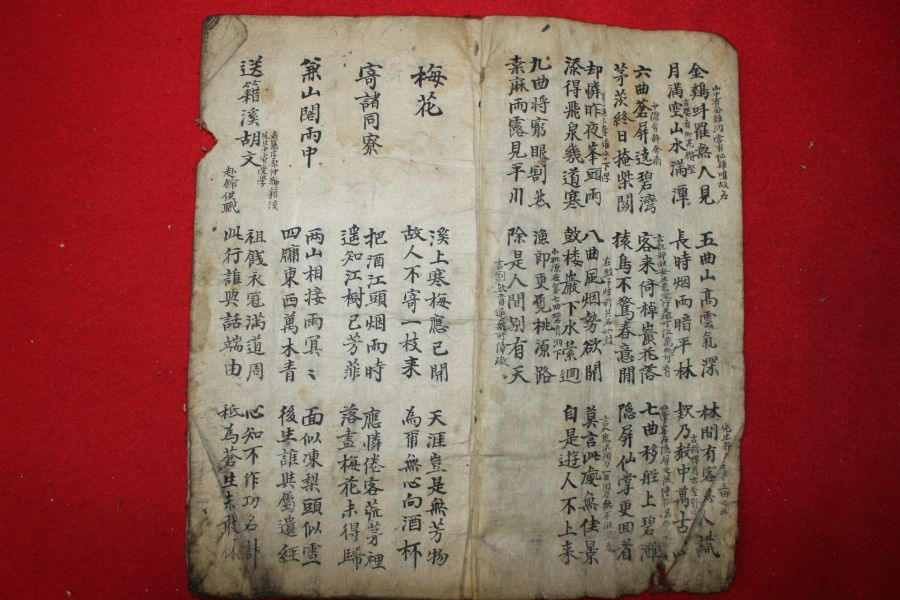 金鷄呌罷無人見
山中有金雞洞常有仙雞鳴故名
月滿空山水滿潭
五曲山高雲氣深
長時烟雨暗平林
林間有客無人識
欸乃聲中萬古心
六曲蒼屏遶碧灣
茅茨終日掩柴關
客來倚棹巖花落
猿鳥不驚春意閒
七曲移船上碧灘
隱屏仙掌更回看
却憐昨夜峯頭雨
添得飛泉幾道寒
八曲風烟勢欲開
鼓楼巖下水縈迴
莫言此處無佳景
自是遊人不上来
九曲將窮眼割然
桑麻雨露見平川
漁郎更覓桃源路
除是人間別有天
梅花
溪上寒梅應已開
故人不寄一枝来
天涯豈是無芳物
為爾無心向酒杯
寄諸同寮
把酒江頭烟雨時
遥知江樹已芳菲
應憐倦客荒茅裡
落盡梅花未得歸
兼山閣雨中
兩山相接雨冥〻
四牖東西萬木青
面似凍梨頭似雪
後生誰與屬遺經
送籍溪胡丈
赴館供職
祖餞衣冠滿道周
此行誰與話端由
心知不作功名計
秪為蒼生未敢休